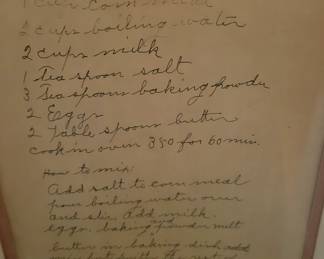 1 cup corn meal
2 cups boiling water
2 cups milk
1 Tea spoon salt
3 Teaspoons baking powder
2 Eggs
2 Table spoons butter
cook in oven 350 for 60 min.
How to mix:
Add salt to corn meal
pour boiling water over
and stir. add milk.
eggs. and baking powder melt
butter in baking dish add